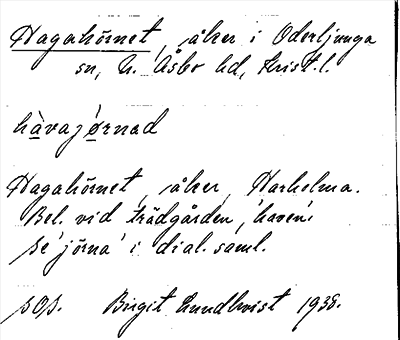 Hagahörnet, åker i Oderljunga
sn, N. Åsbo hd, Krist. l.
hàvajørnad
Hagahörnet, åker, Harholma.
Bel. vid trädgården, 'haven'.
Se 'jörna' i dial. saml.
SOS. Birgit Lundkvist 1938.